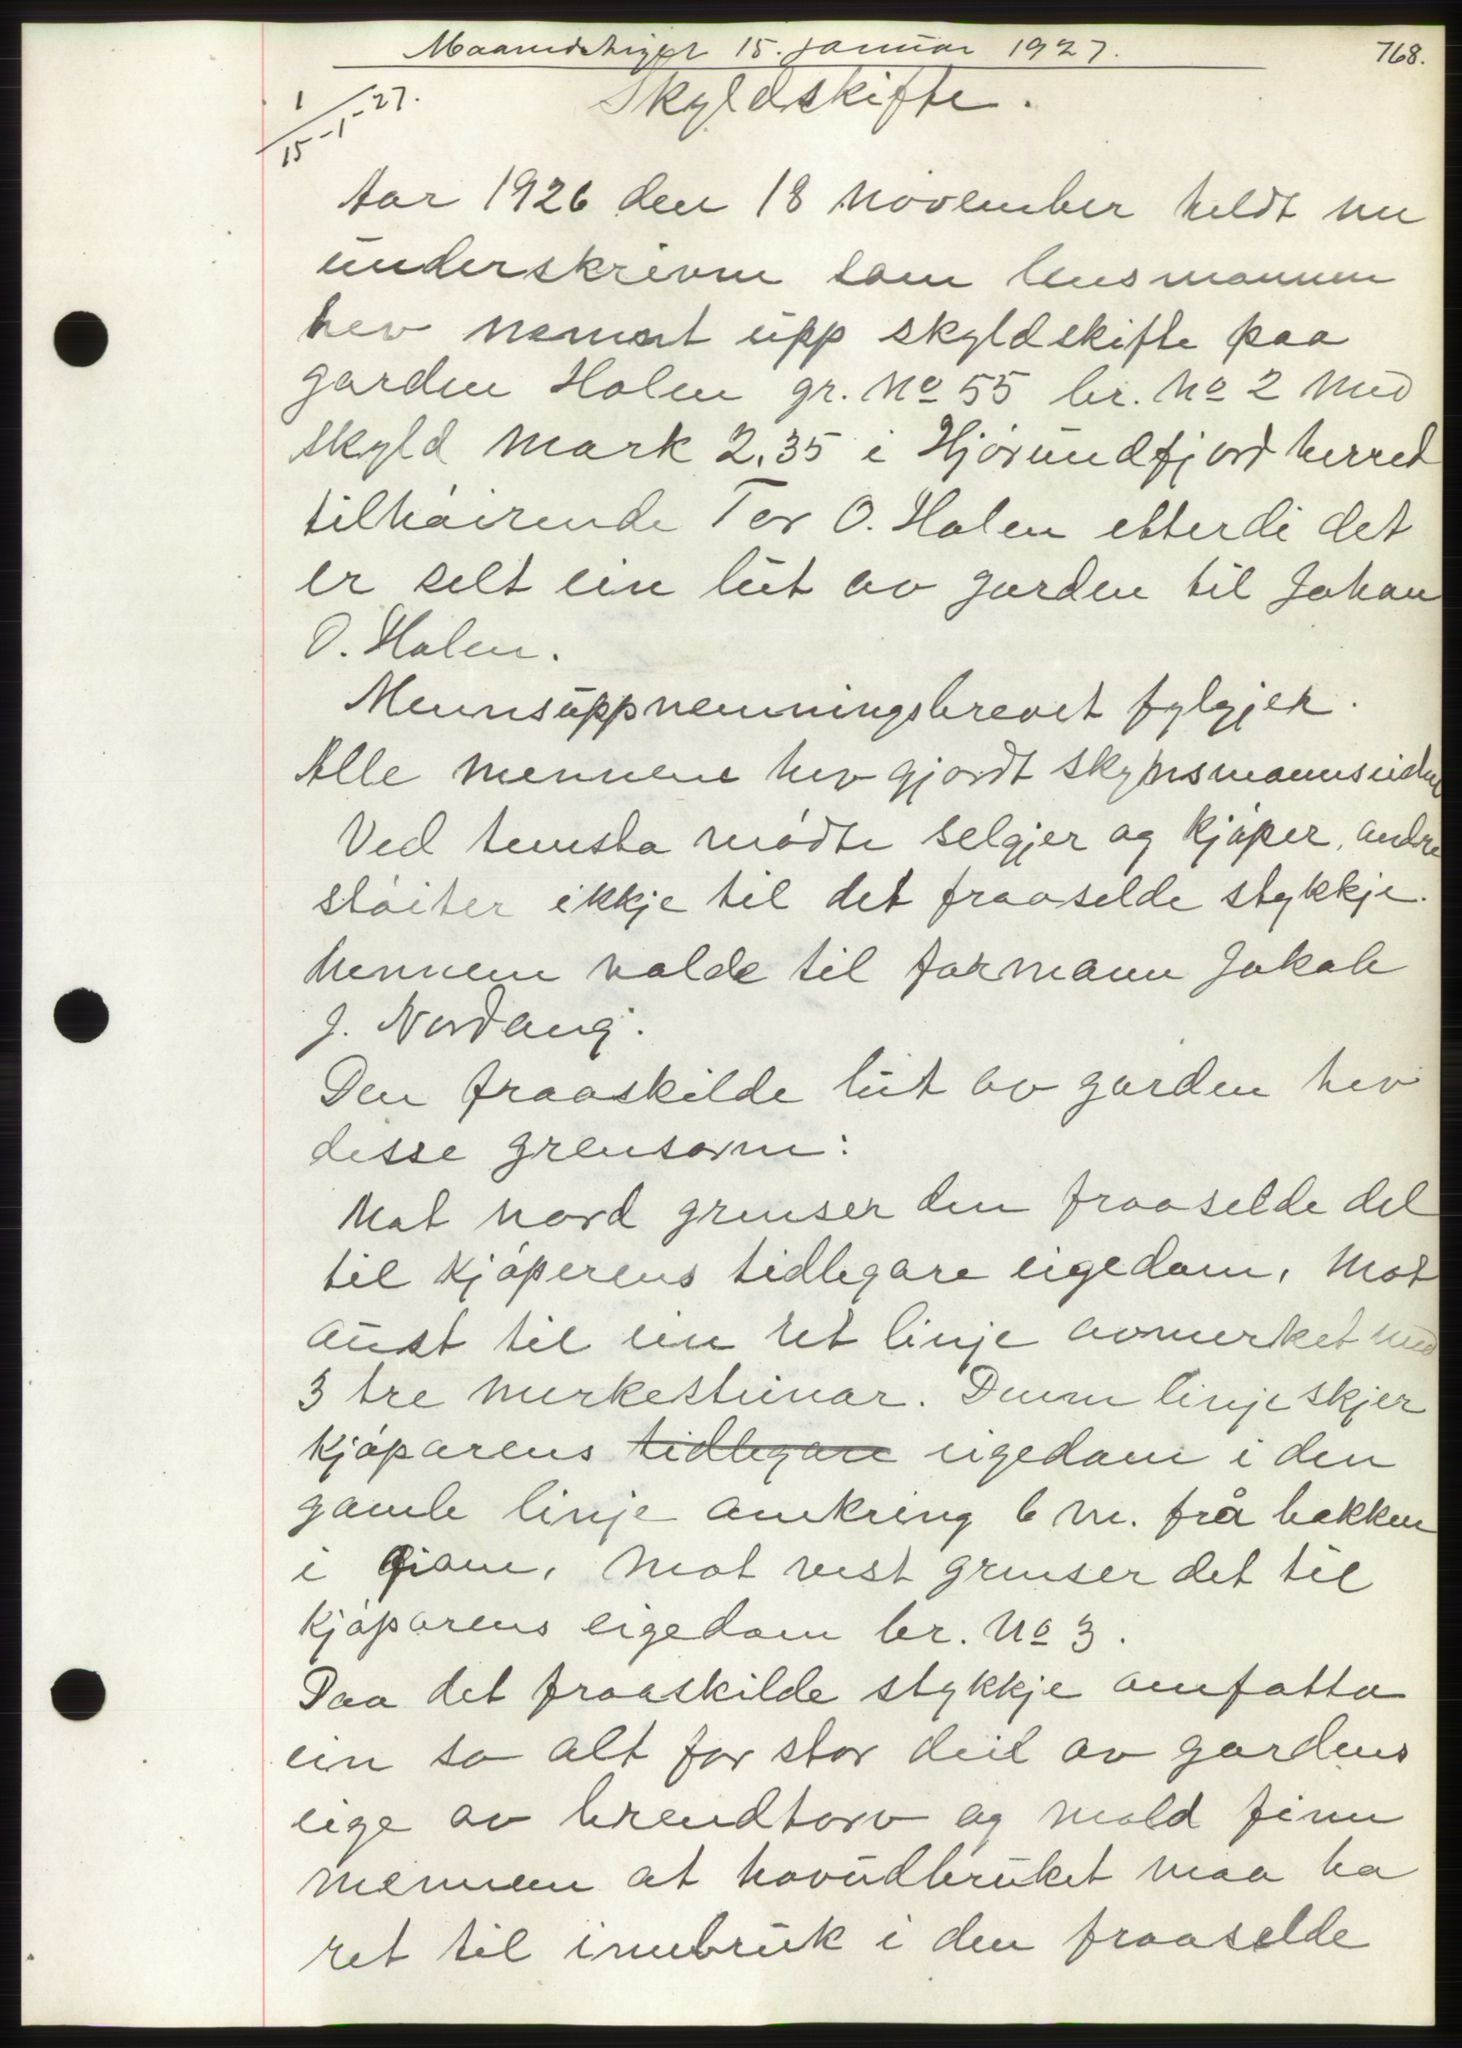 Maanedskifte 15. januar 1927.
768.
1
15-1-27.
Skyldskifte.
Aar 1926 den 18 november heldt me
underskrivne som lensmannen
hev nemnt upp skyldskifte paa
garden Holen gr. No 55 br. No 2 med
skyld mark 2,35 i Hjørundfjord herred
tilhøirende Tor O. Holen etterdi det
er selt ein lut av garden til Johan
O. Holen.
Mennsuppnemningsbrevet fylgjer.
Alle mennene hev gjordt skynsmannseiden
Ved temsta mødte selgjer og kjøper, andre
støiter ikkje til det fraaselde stykkje.
Mennene valde til formann Jakob
J. Nordang.
Den fraaskilde lut av garden hev
disse grensorne:
Mot nord grenser den fraaselde del
til kjøperens tidlegare eigedom, Mot
aust til ein ret linje avmerket med
3 tre merkesteinar. Denne linje skjer
kjøparens tidlegare eigedom i den
gamle linje omkring 6 m. frå bakken
i mot vest grenser det til
kjøparens eigedom br. No 3.
Daa det fraaskilde stykkje omfatta
ein so alt for stor deil av gardens
eige av brendtorv og mold finn
mennene at hovudbruket maa ha
ret til innbruk i den fraaselde